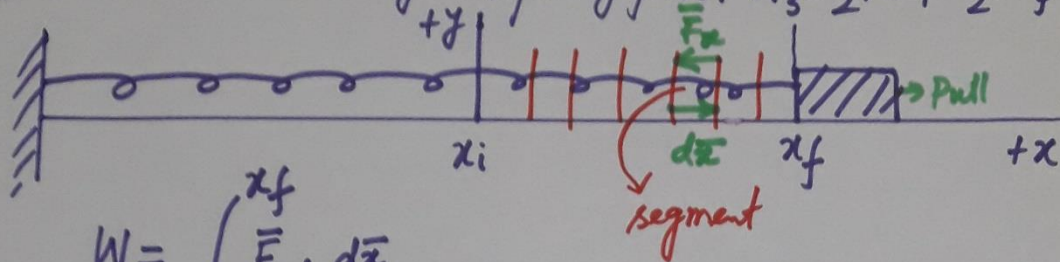 +y F̅x
Pull
xi dx̅ xf +x
segment
xf
W = ∫ F̅ . dx̅